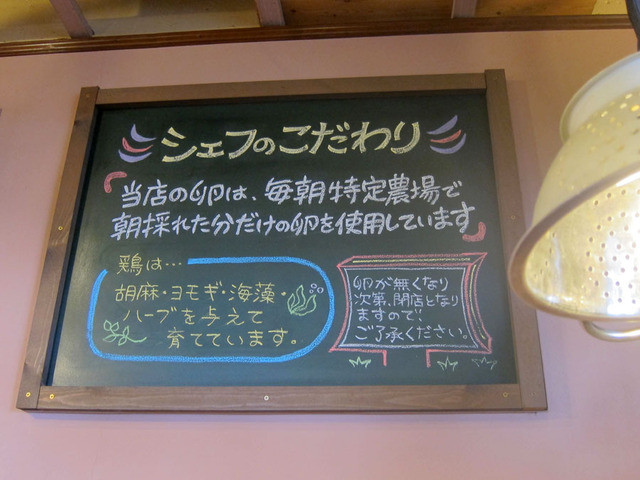 シェフのこだわり
当店の卵は、毎朝特定農場で
朝採れた分だけの卵を使用しています
鶏は…
胡麻・ヨモギ・海藻・
ハーブを与えて
育てています。
卵が無くなり
次第、閉店となり
ますので!
ご了承ください。